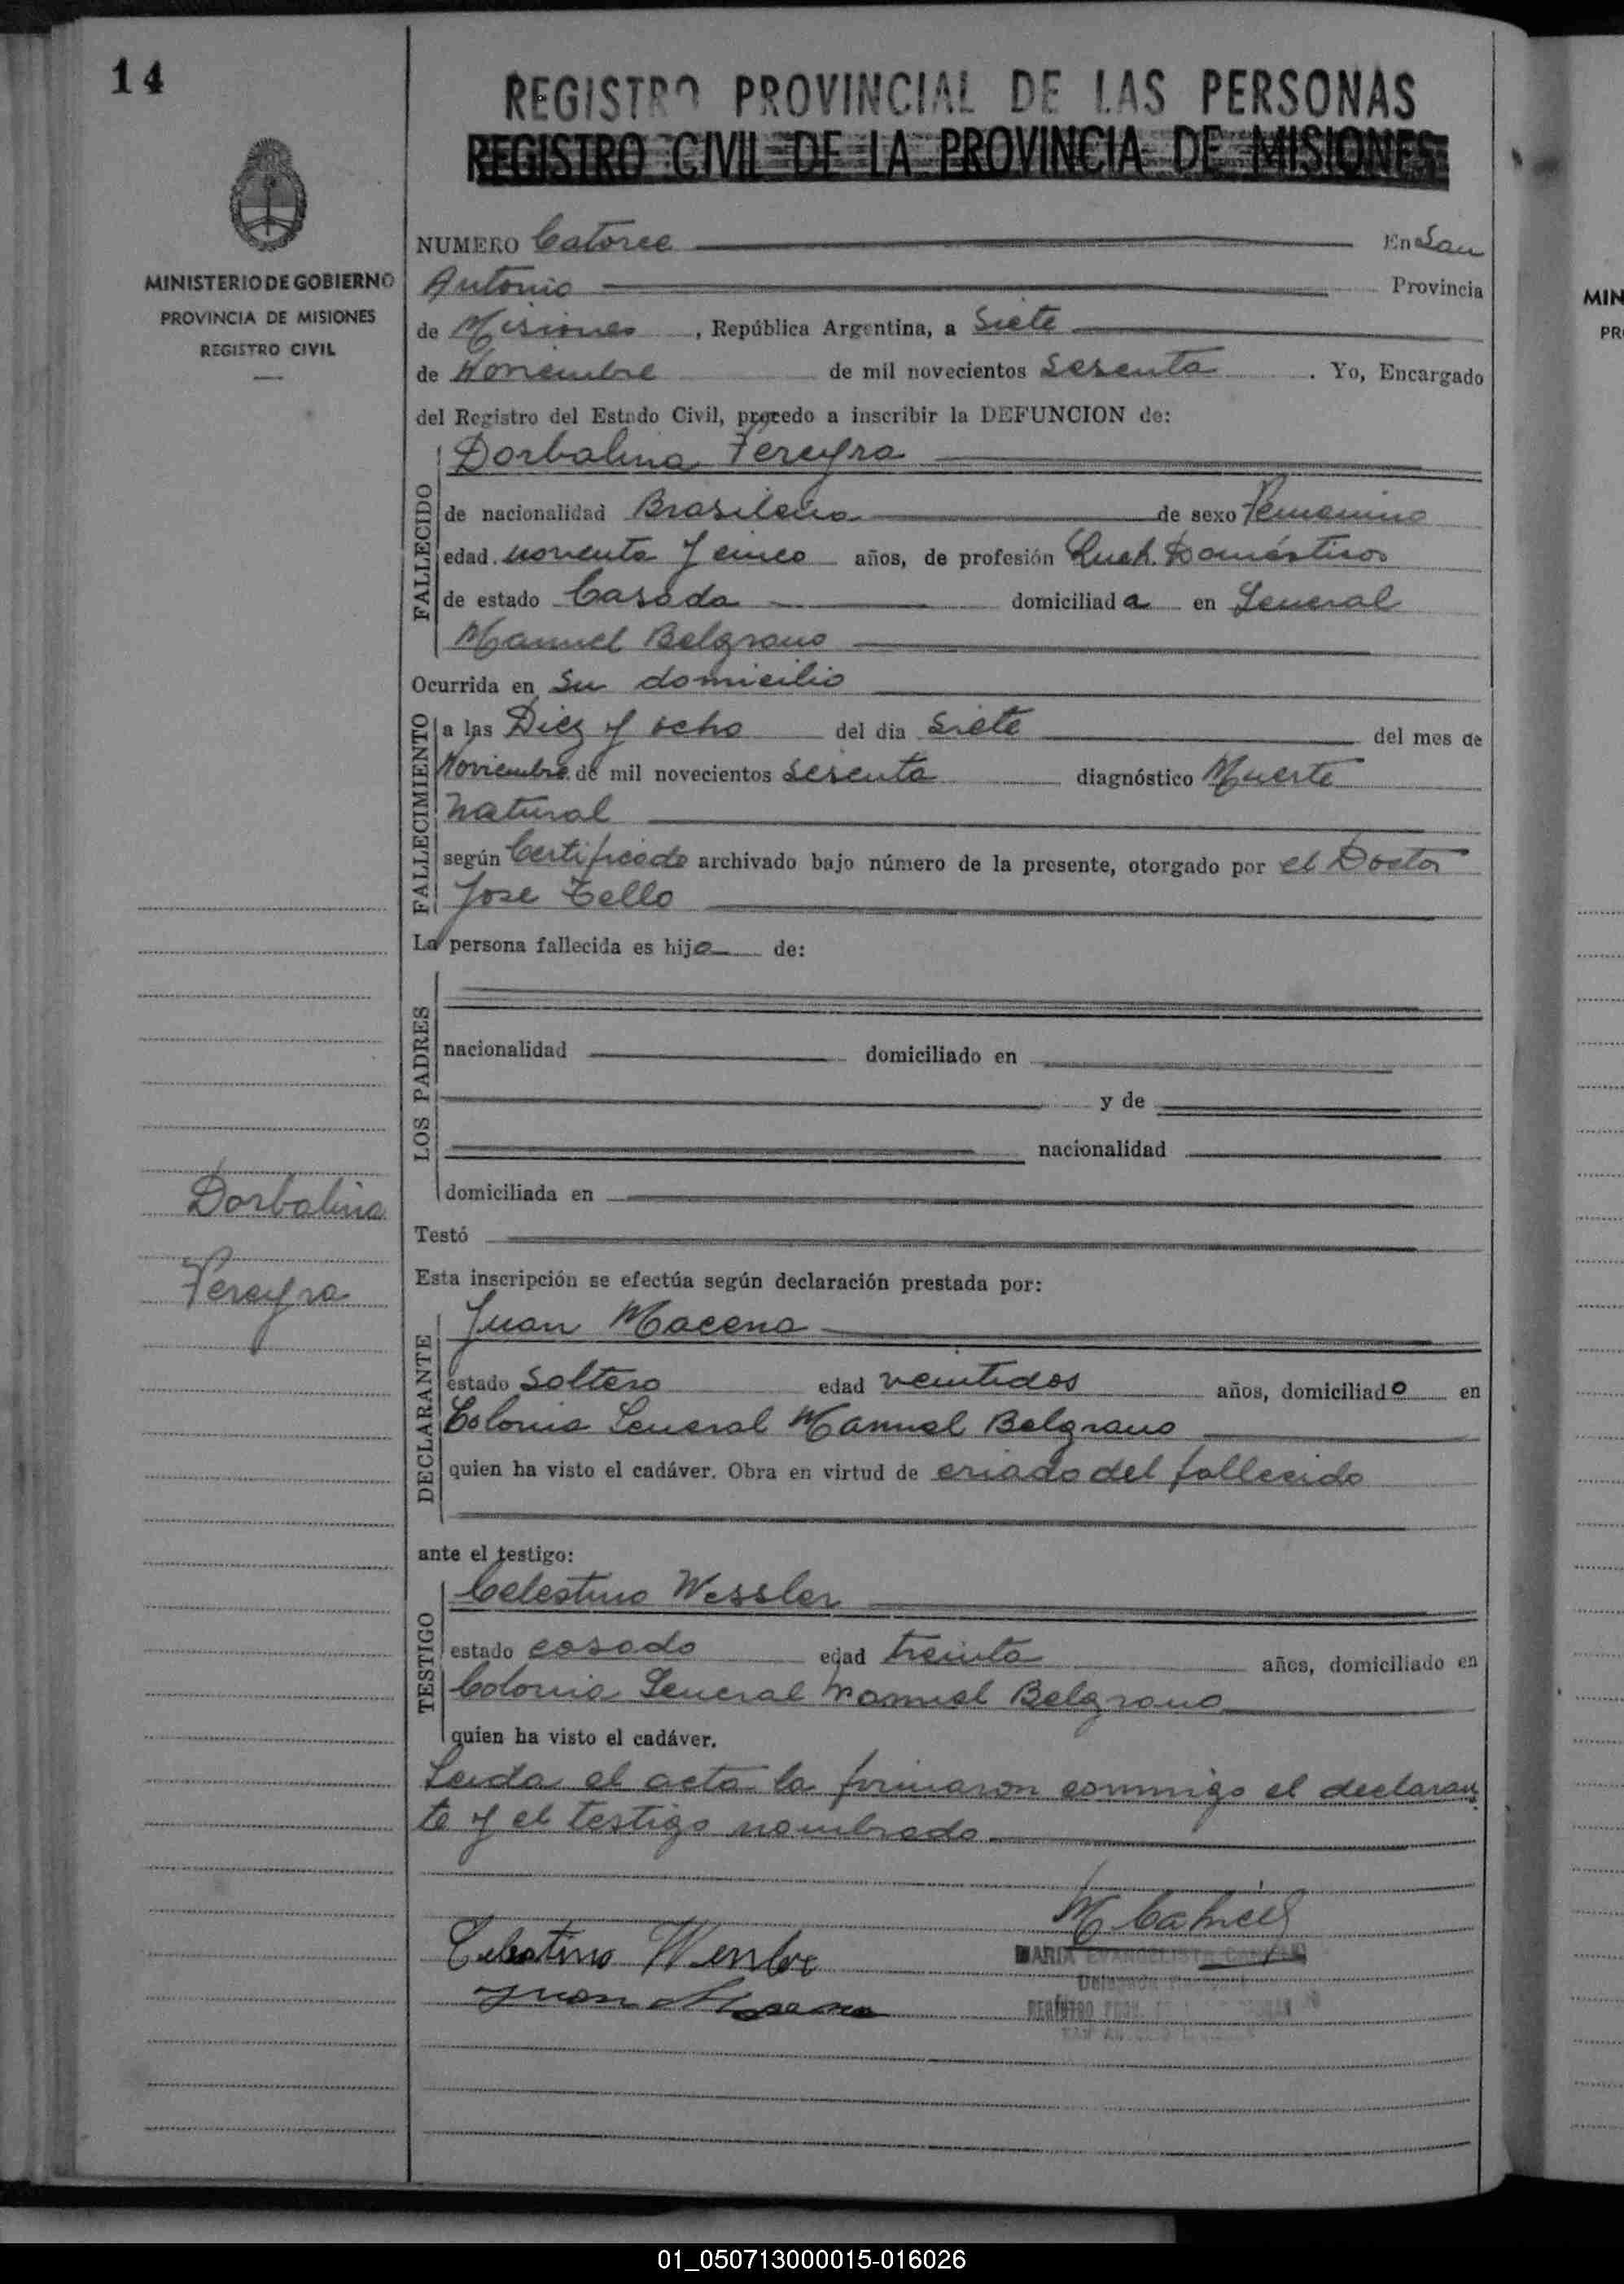 14
REGISTRO PROVINCIAL DE LAS PERSONAS
REGISTRO CIVIL DE LA PROVINCIA DE MISIONES
MINISTERIO DE GOBIERNO
PROVINCIA DE MISIONES
REGISTRO CIVIL
NUMERO Catorce En San
Antonio Provincia
de Misiones, República Argentina, a Siete
de Noviembre de mil novecientos Sesenta. Yo, Encargado
del Registro del Estado Civil, procedo a inscribir la DEFUNCION de:
FALLECIDO
Dorbalina Pereyra
de nacionalidad Brasileña de sexo Femenino
edad noventa y cinco años, de profesión Queh. Domésticos
de estado Casada domiciliada en General
Manuel Belgrano
Ocurrida en Su domicilio
FALLECIMIENTO
a las Diez y ocho del dia Siete del mes de
Noviembre de mil novecientos Sesenta diagnóstico Muerte
natural
según Certificado archivado bajo número de la presente, otorgado por el Doctor
Jose Tello
La persona fallecida es hija de:
LOS PADRES
nacionalidad domiciliado en
y de
nacionalidad
domiciliada en
Dorbalina
Pereyra
Testó
Esta inscripción se efectúa según declaración prestada por:
DECLARANTE
Juan Macena
estado Soltero edad veintidos años, domiciliado en
Colonia General Manuel Belgrano
quien ha visto el cadáver. Obra en virtud de criado del fallecido
ante el testigo:
TESTIGO
Celestino Wessler
estado casado edad treinta años, domiciliado en
Colonia General Manuel Belgrano
quien ha visto el cadáver.
Leida el acta la firmaron conmigo el declaran
te y el testigo nombrado
Celestino
MARIA EVANGELISTA
Juan
MIN
PR
01_050713000015-016026